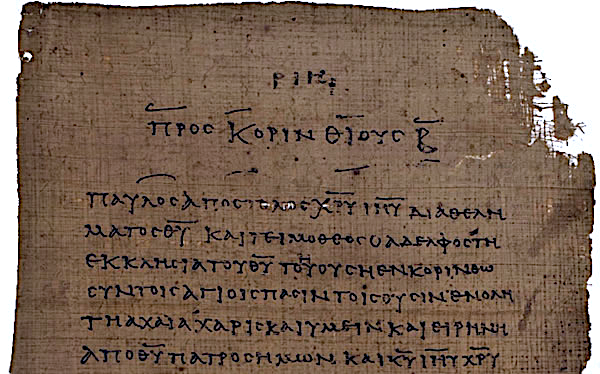 ΡΙΗ
ΠΡΟϹ ΚΟΡΙΝΘΙΟΥϹ Β̅
ΠΑΥΛΟϹ ΑΠΟϹΤΟΛΟϹ Χ̅Ρ̅Υ̅ Ι̅Η̅Υ̅ ΔΙΑ ΘΕΛΗ
ΜΑΤΟϹ Θ̅Υ̅ ΚΑΙ ΤΕΙΜΟΘΕΟϹ Ο ΑΔΕΛΦΟϹ ΤΗ
ΕΚΚΛΗϹΙΑ ΤΟΥ Θ̅Υ̅ ΤΗ ΟΥϹΗ ΕΝ ΚΟΡΙΝΘΩ
ϹΥΝ ΤΟΙϹ ΑΓΙΟΙϹ ΠΑϹΙΝ ΤΟΙϹ ΟΥϹΙΝ ΕΝ ΟΛΗ
ΤΗ ΑΧΑΙΑ ΧΑΡΙϹ ΚΑΙ ΥΜΕΙΝ ΚΑΙ ΕΙΡΗΝΗ
ΑΠΟ Θ̅Υ̅ ΠΑΤΡΟϹ ΗΜΩΝ ΚΑΙ Κ̅Υ̅ Ι̅Η̅Υ̅ Χ̅Ρ̅Υ̅